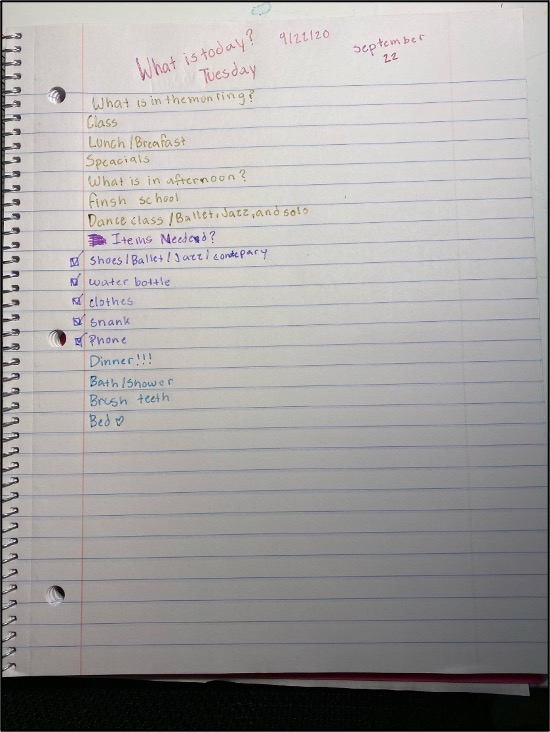 What is today? 9/22/20 September
22
Tuesday
What is in themonring?
Class
Lunch/Breafast
Speacials
What is in afternoon?
finsh school
Dance class/Ballet,Jazz,and solo
Items Needed?
Shoes/Ballet/Jazz/
water bottle
clothes
snank
Phone
Dinner!!!
Bath/shower
Brush teeth
Bed♡